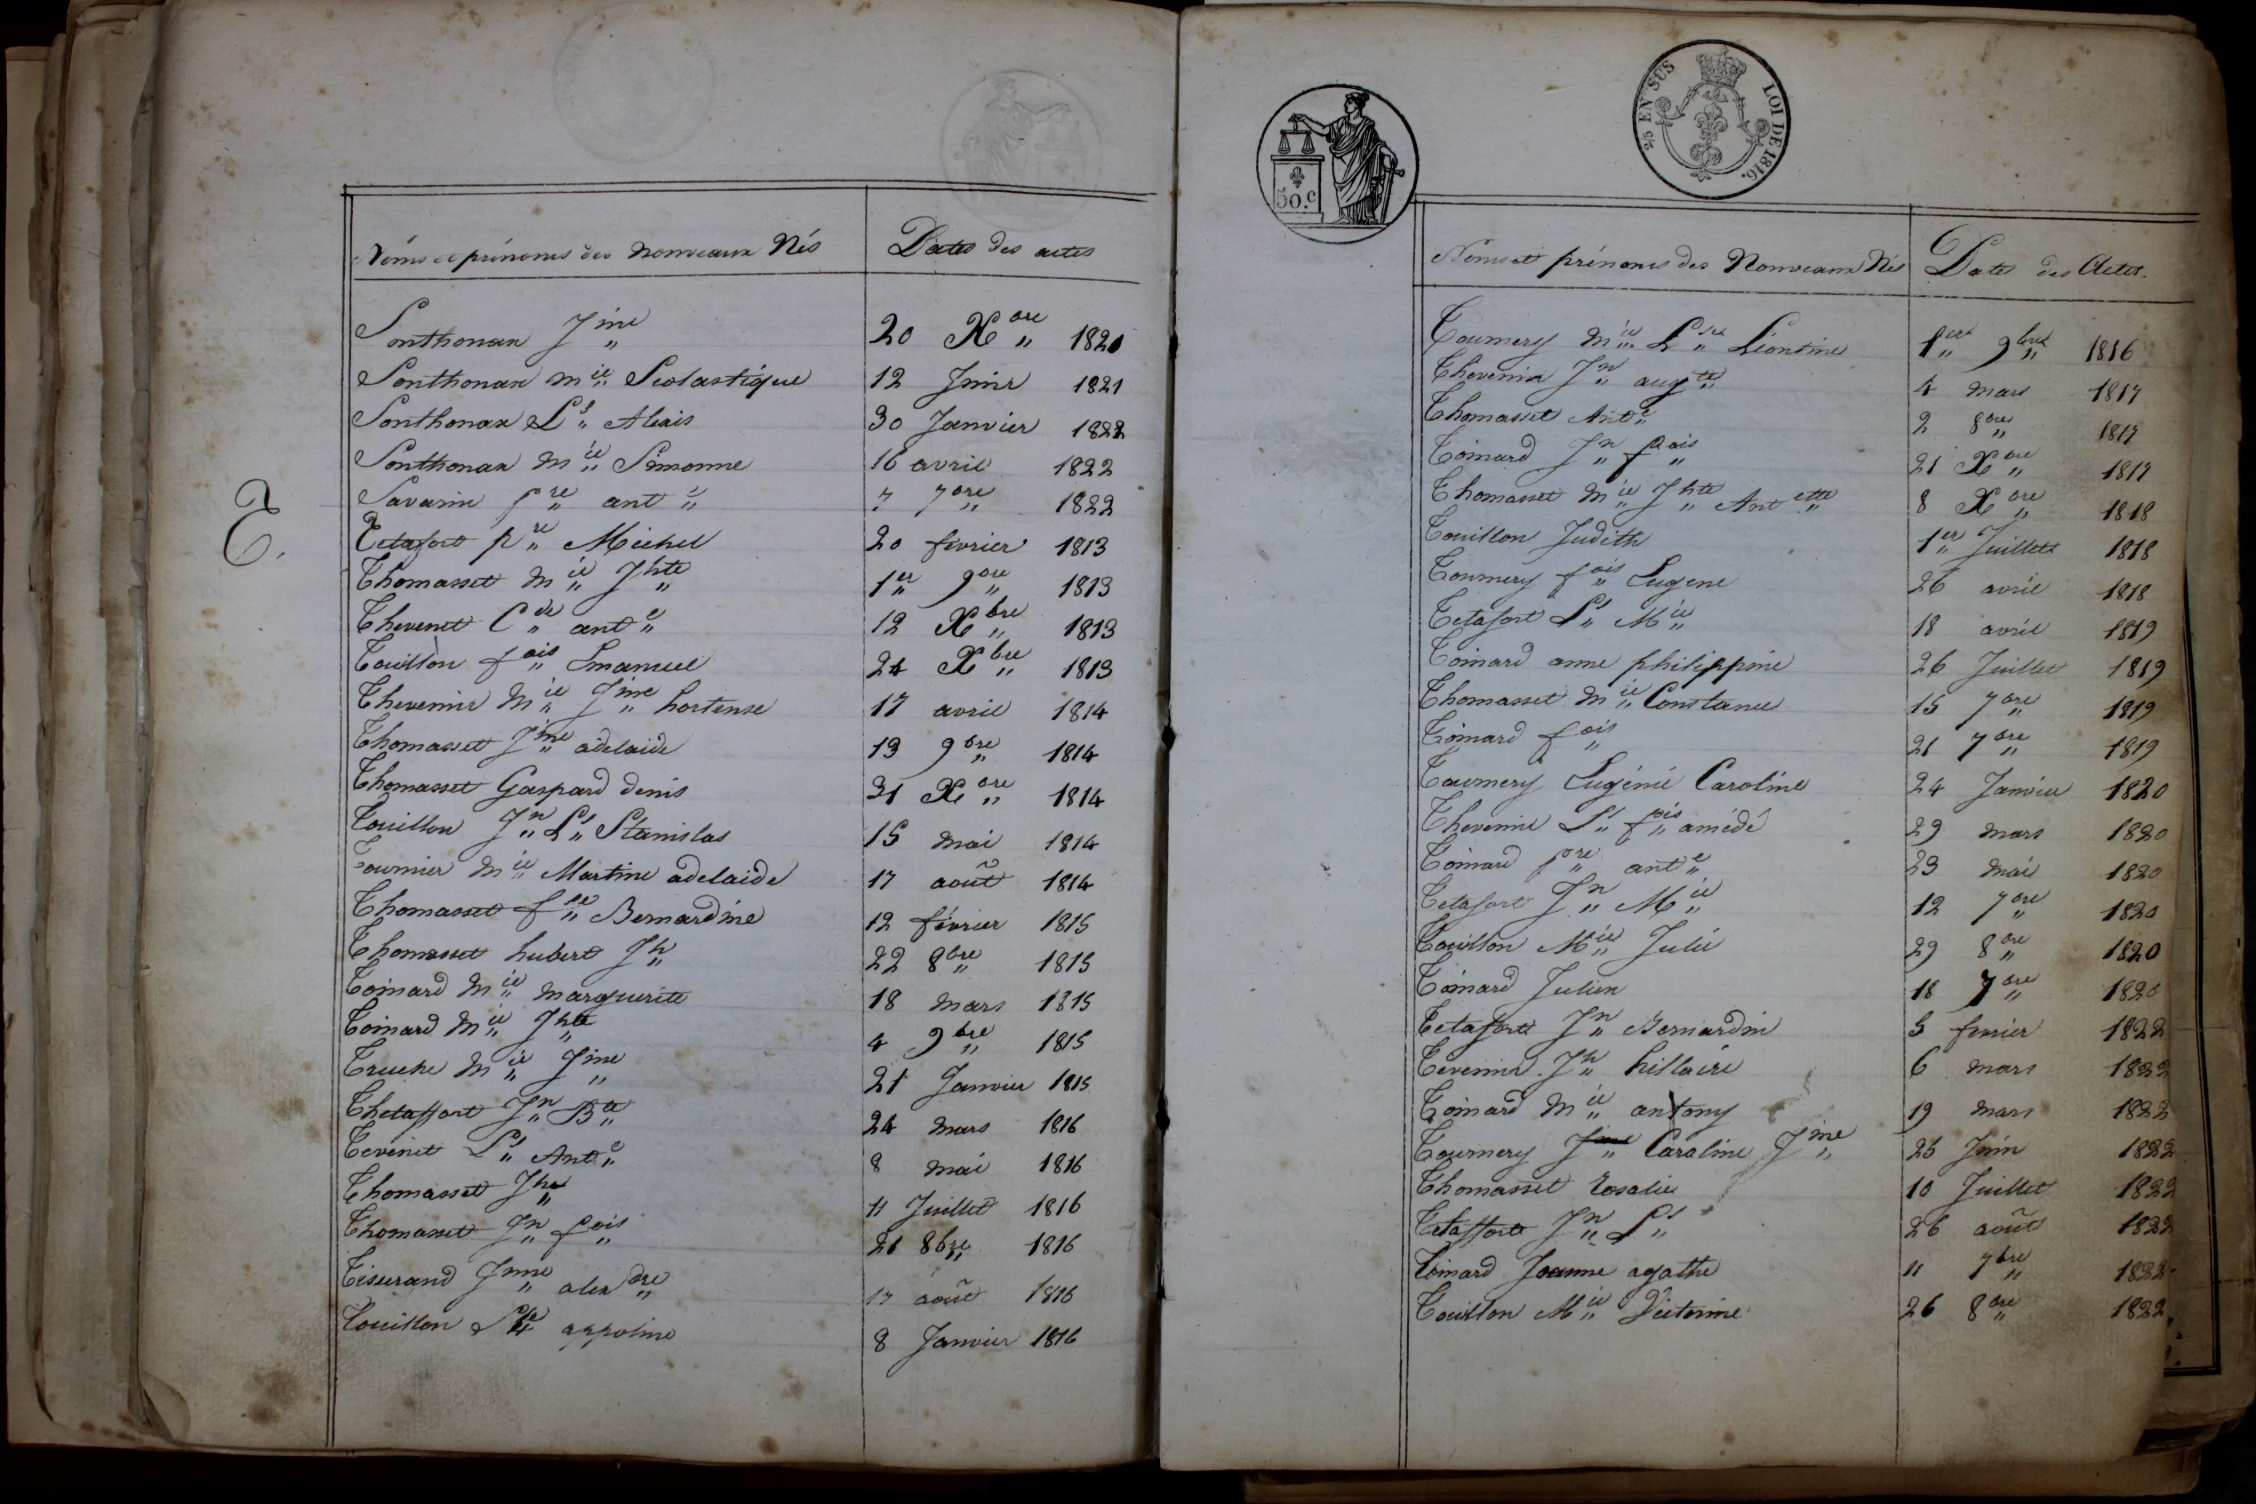 Noms et prénoms des nouveaux Nés Dates des actes
Sonthonax Jine 20 Xbre 1820
Sonthonax mie Scolastique 12 Juin 1821
Sonthonax Ls Alexis 30 Janvier 1822
Sonthonax mie Simonne 16 avril 1822
Savarin pre ante 7 7bre 1822
T.
Tetafort pre Michel 20 fevrier 1813
Thomasset mie Jhte 1er 9bre 1813
Thevenet Cde ante 12 Xbre 1813
Touillon fois Emanuel 24 Xbre 1813
Thevenin Mie Jine hortense 17 avril 1814
Thomasset Jine adelaide 13 9bre 1814
Thomasset Gaspard denis 31 Xbre 1814
Touillon Jn Ls Stanislas 15 mai 1814
Tournier mie Martine adelaide 17 août 1814
Thomasset fse Bernardine 12 février 1815
Thomasset hubert Jh 22 8bre 1815
Toinard mie marguerite 18 mars 1815
Toinard mie Jhte 4 9bre 1815
Truche mie Jine 21 Janvier 1815
Thetaffort Jn Bte 24 mars 1816
Tevenet Ls Ante 8 mai 1816
Thomasset Jh 11 Juillet 1816
Thomasset Jn fois 21 8bre 1816
Tisserand Jnne alexdre 17 août 1816
Touillon appoline 8 Janvier 1816
50.c
25 EN SUS LOI DE 1816.
Noms et prénoms des Nouveaux Nés Dates des Actes.
Tournery mie Lse Léontine 1er 9bre 1816
Thevenin Jn augte 4 mars 1817
Thomasset Ante 2 8bre 1817
Toinard Jn fois 21 Xbre 1817
Thomasset mie Jhte Antette 8 Xbre 1818
Touillon Judith 1er Juillet 1818
Tournery fois Eugene 26 avril 1818
Tetafort Ls Mie 18 avril 1819
Toinard anne philippine 26 Juillet 1819
Thomasset mie Constance 15 7bre 1819
Toinard fois 21 7bre 1819
Tournery Eugénie Caroline 24 Janvier 1820
Thevenin Ls fois amédé 29 mars 1820
Toinard pre ante 23 mai 1820
Tetafort Jn Mie 12 7bre 1820
Touillon Mie Julie 29 8bre 1820
Toinard Julien 18 7bre 1820
Tetafort Jn Bernardin 5 fevrier 1822
Tevenin Jh hillaire 6 mars 1822
Toinard mie antony 19 mars 1822
Tournery Jine Caroline Jine 25 Juin 1822
Thomasset Rosalie 10 Juillet 1822
Tetaffort Jn Ls 26 août 1822
Toinard Jeanne agathe 11 7bre 1822
Touillon Mie Victorine 26 8bre 1822